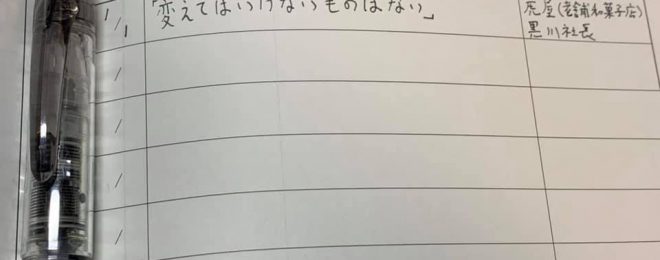 1/1
「変えてはいけないものはない」
虎屋(老舗和菓子店)
黒川社長
/
/
/
/